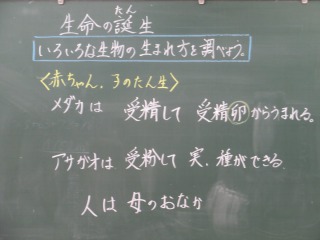 生命の誕生
たん
いろいろな生物の生まれ方を調べよう。
〈赤ちゃん、子のたん生〉
メダカは 受精して 受精卵からうまれる。
アサガオは 受粉して 実、種ができる
人は 母のおなか